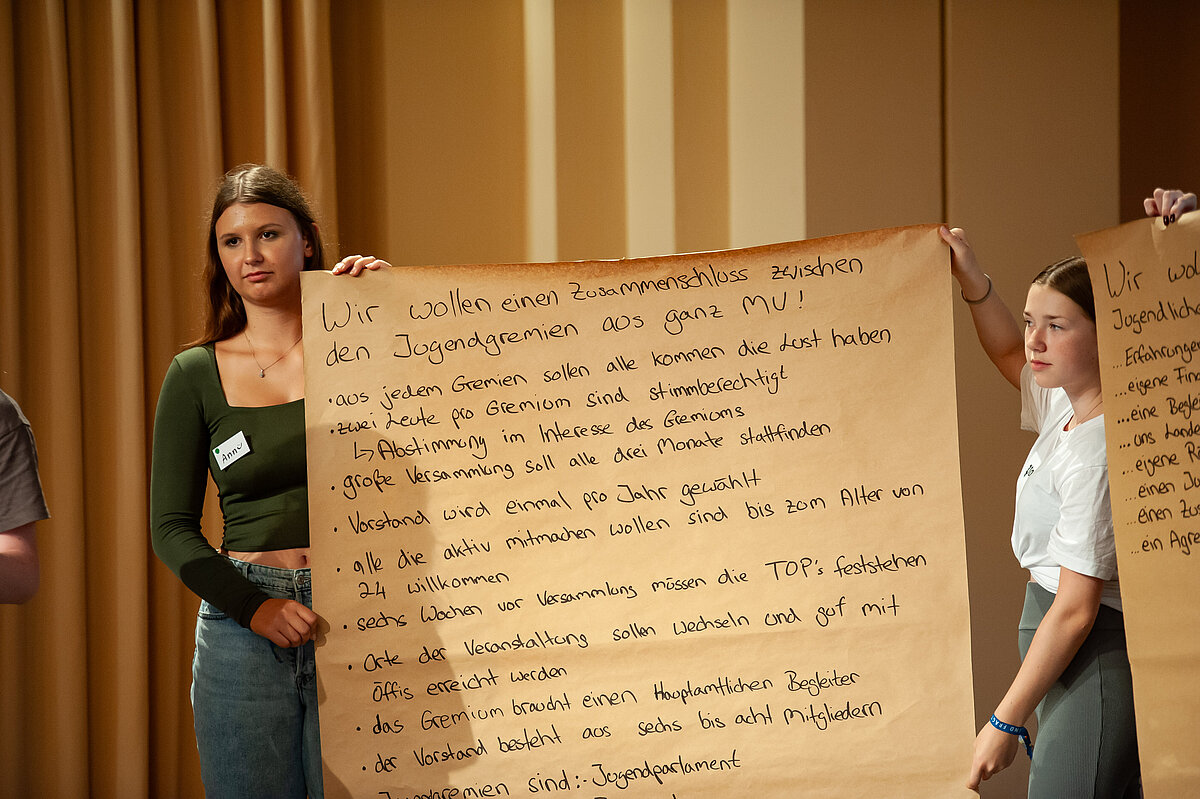 Wir wollen einen Zusammenschluss zwischen
den Jugendgremien aus ganz MV!
• aus jedem Gremien sollen alle kommen die Lust haben
• zwei Leute pro Gremium sind stimmberechtigt
↳ Abstimmung im Interesse des Gremiums
• große Versammlung soll alle drei Monate stattfinden
• Vorstand wird einmal pro Jahr gewählt
• alle die aktiv mitmachen wollen sind bis zum Alter von
24 willkommen
• sechs Wochen vor Versammlung müssen die TOP's feststehen
• Orte der Veranstaltung sollen wechseln und gut mit
Öffis erreicht werden
• das Gremium braucht einen Hauptamtlichen Begleiter
• der Vorstand besteht aus sechs bis acht Mitgliedern
Jugendgremien sind: - Jugendparlament
Anna
Wir wol
Jugendliche
...Erfahrungen
...eigene Fin
...eine Beglei
...uns Lande
...eigene Rä
...einen Ju
...einen Zus
...ein Agre